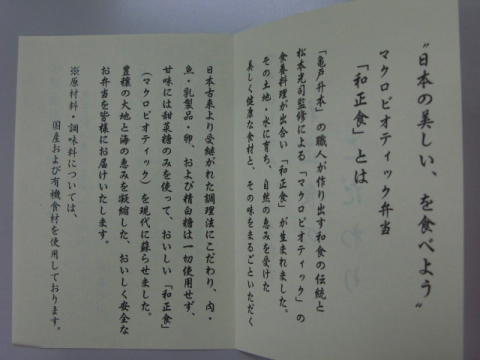 〝日本の美しい、を食べよう〟
マクロビオティック弁当
「和正食」とは
「亀戸升本」の職人が作り出す和食の伝統と
松本光司監修による「マクロビオティック」の
食養料理が出合い「和正食」が生まれました。
その土地・水に育ち、自然の恵みを受けた
美しく健康な食材と、その味をまるごといただく
日本古来より受継がれた調理法にこだわり、肉・
魚・乳製品・卵、および精白糖は一切使用せず、
甘味には甜菜糖のみを使って、おいしい「和正食」
(マクロビオティック)を現代に蘇らせました。
豊穣の大地と海の恵みを凝縮した、おいしく安全な
お弁当を皆様にお届けいたします。
※原材料・調味料については、
国産および有機食材を使用しております。